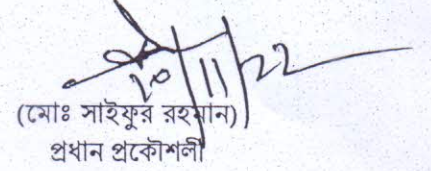 ২০/11/22
(মোঃ সাইফুর রহমান)
প্রধান প্রকৌশলী